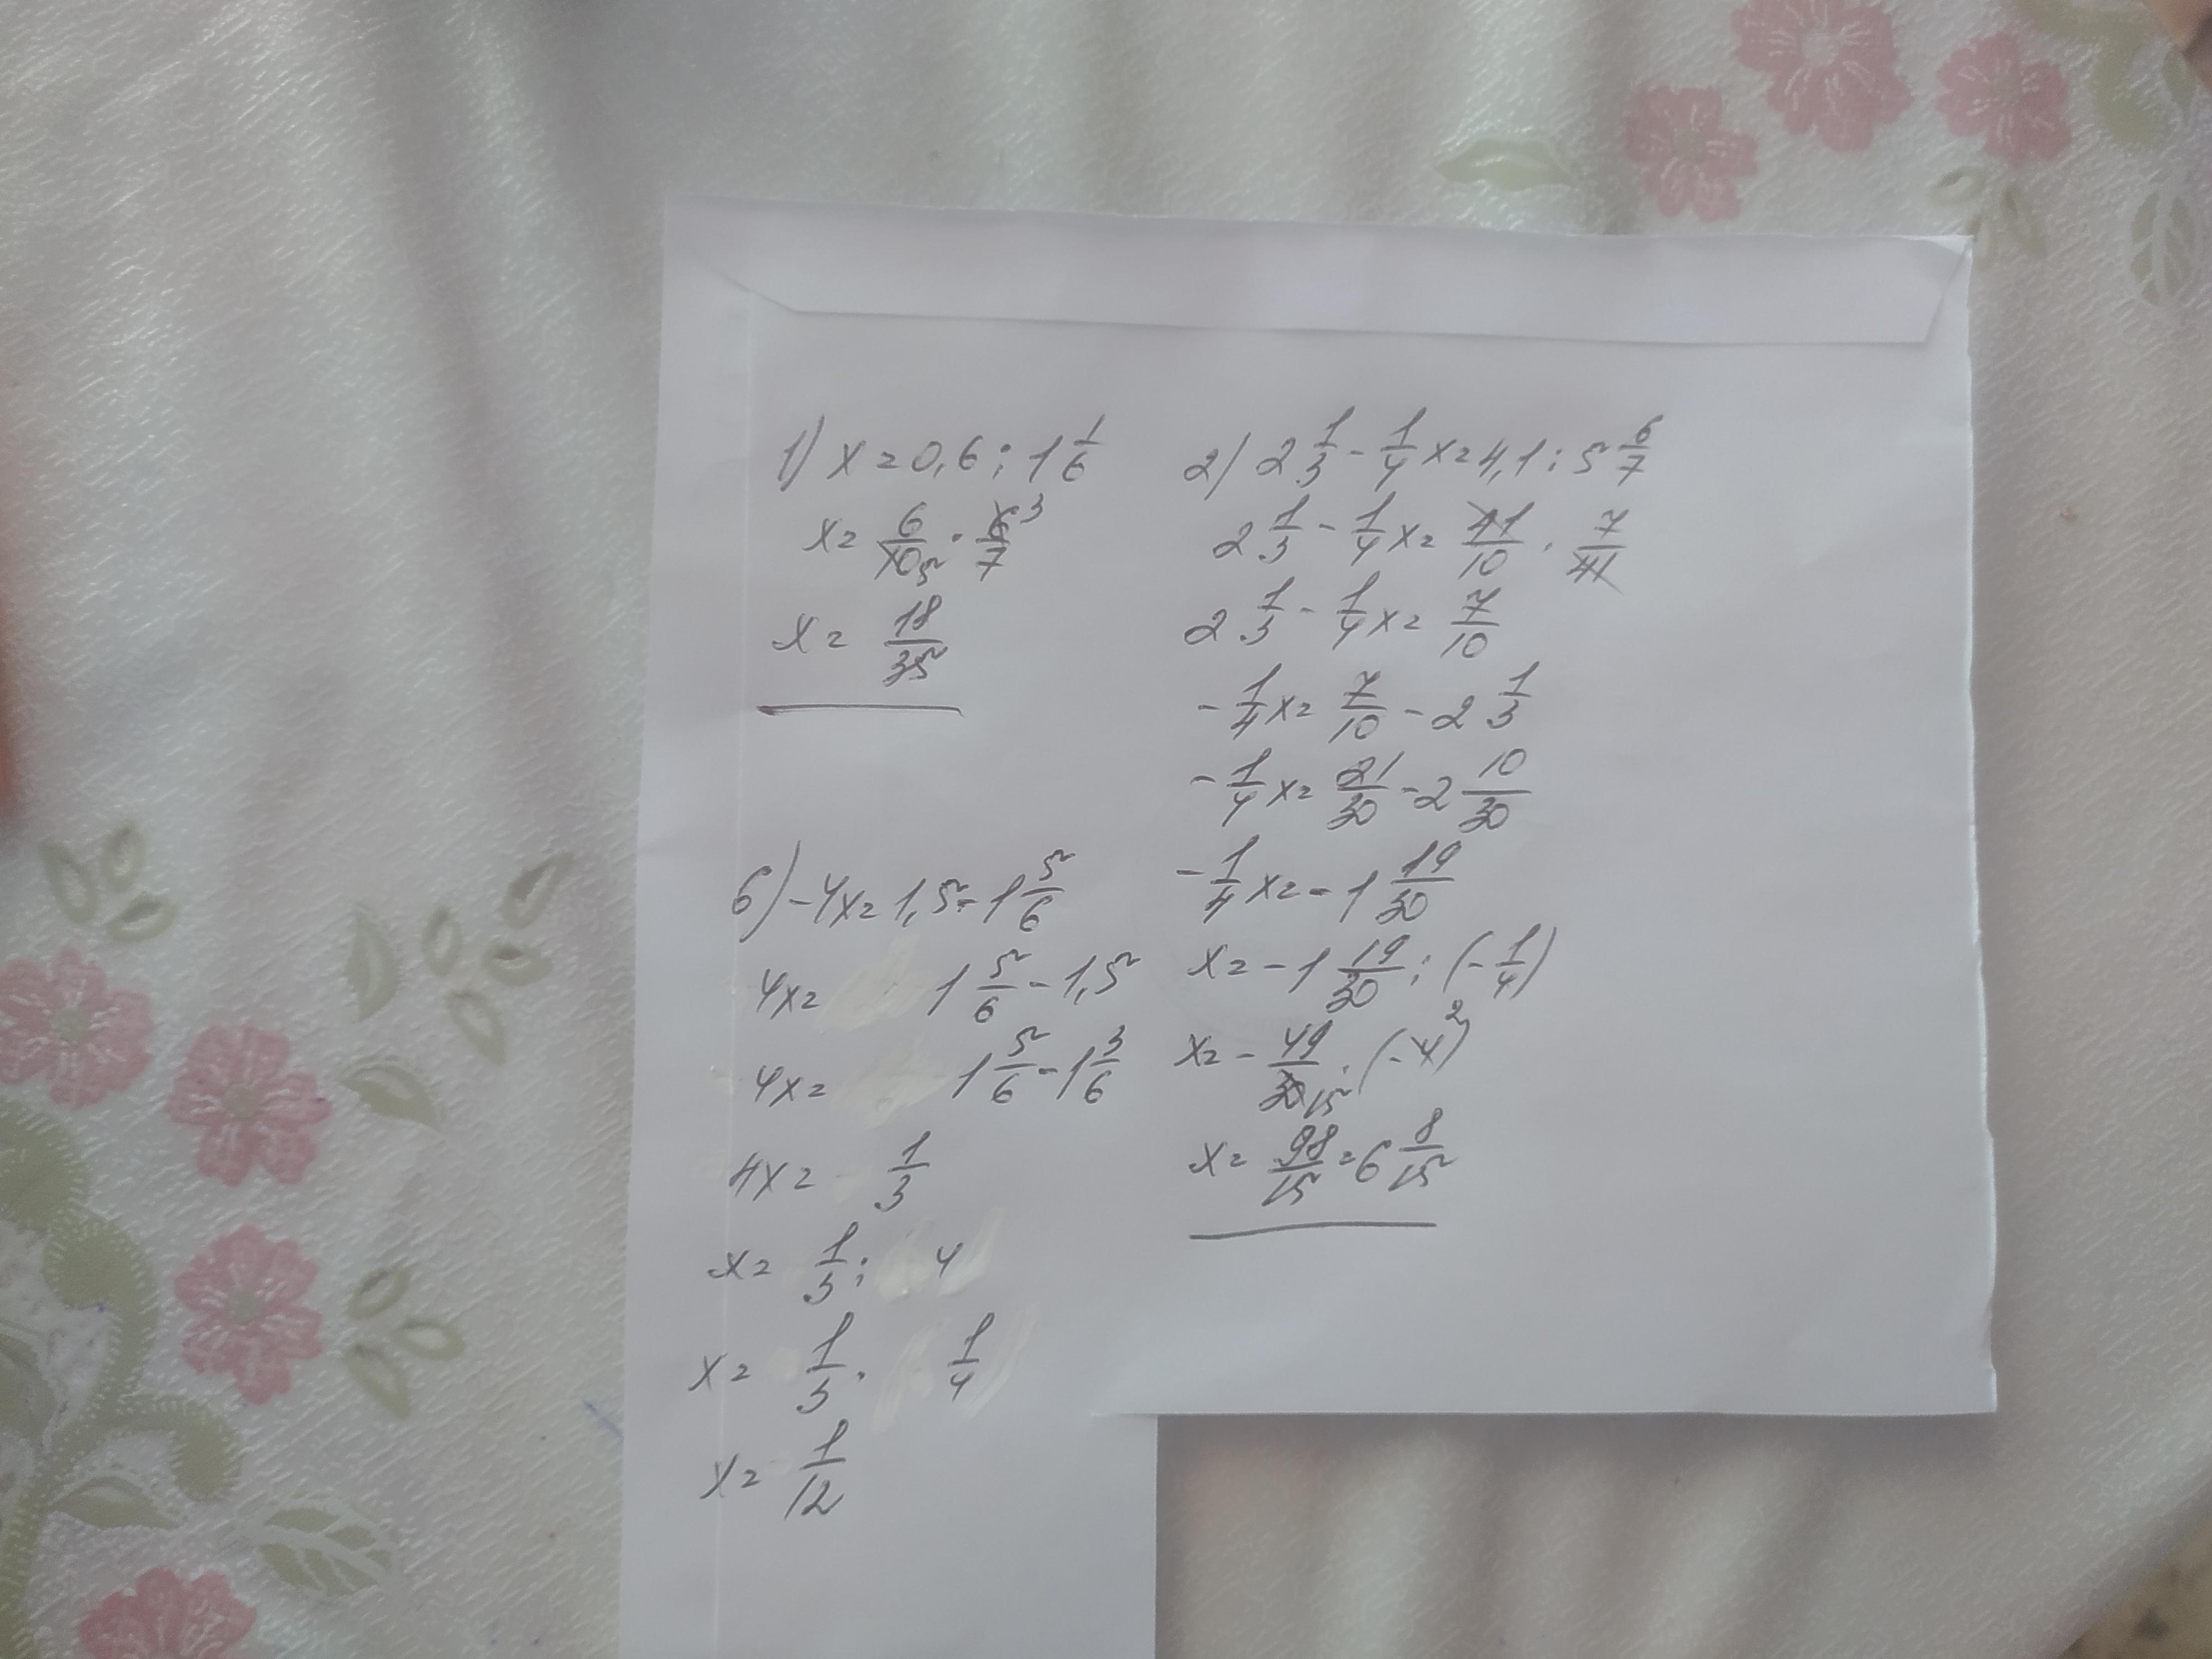 1) x=0,6:1 1/6
x= 6/10 5 · 6/7 3
x= 18/35
2) 2 1/3 - 1/4 x=4,1:5 6/7
2 1/3 - 1/4 x= 41/10 · 7/41
2 1/3 - 1/4 x= 7/10
- 1/4 x= 7/10 - 2 1/3
- 1/4 x= 21/30 - 2 10/30
- 1/4 x= - 1 19/30
x= - 1 19/30 : (- 1/4)
x= - 49/30 15 · (-4) 2
x= 98/15 = 6 8/15
6) -4x=1,5-1 5/6
4x= 1 5/6 - 1,5
4x= 1 5/6 - 1 3/6
4x= 1/3
x= 1/3 : 4
x= 1/3 · 1/4
x= 1/12